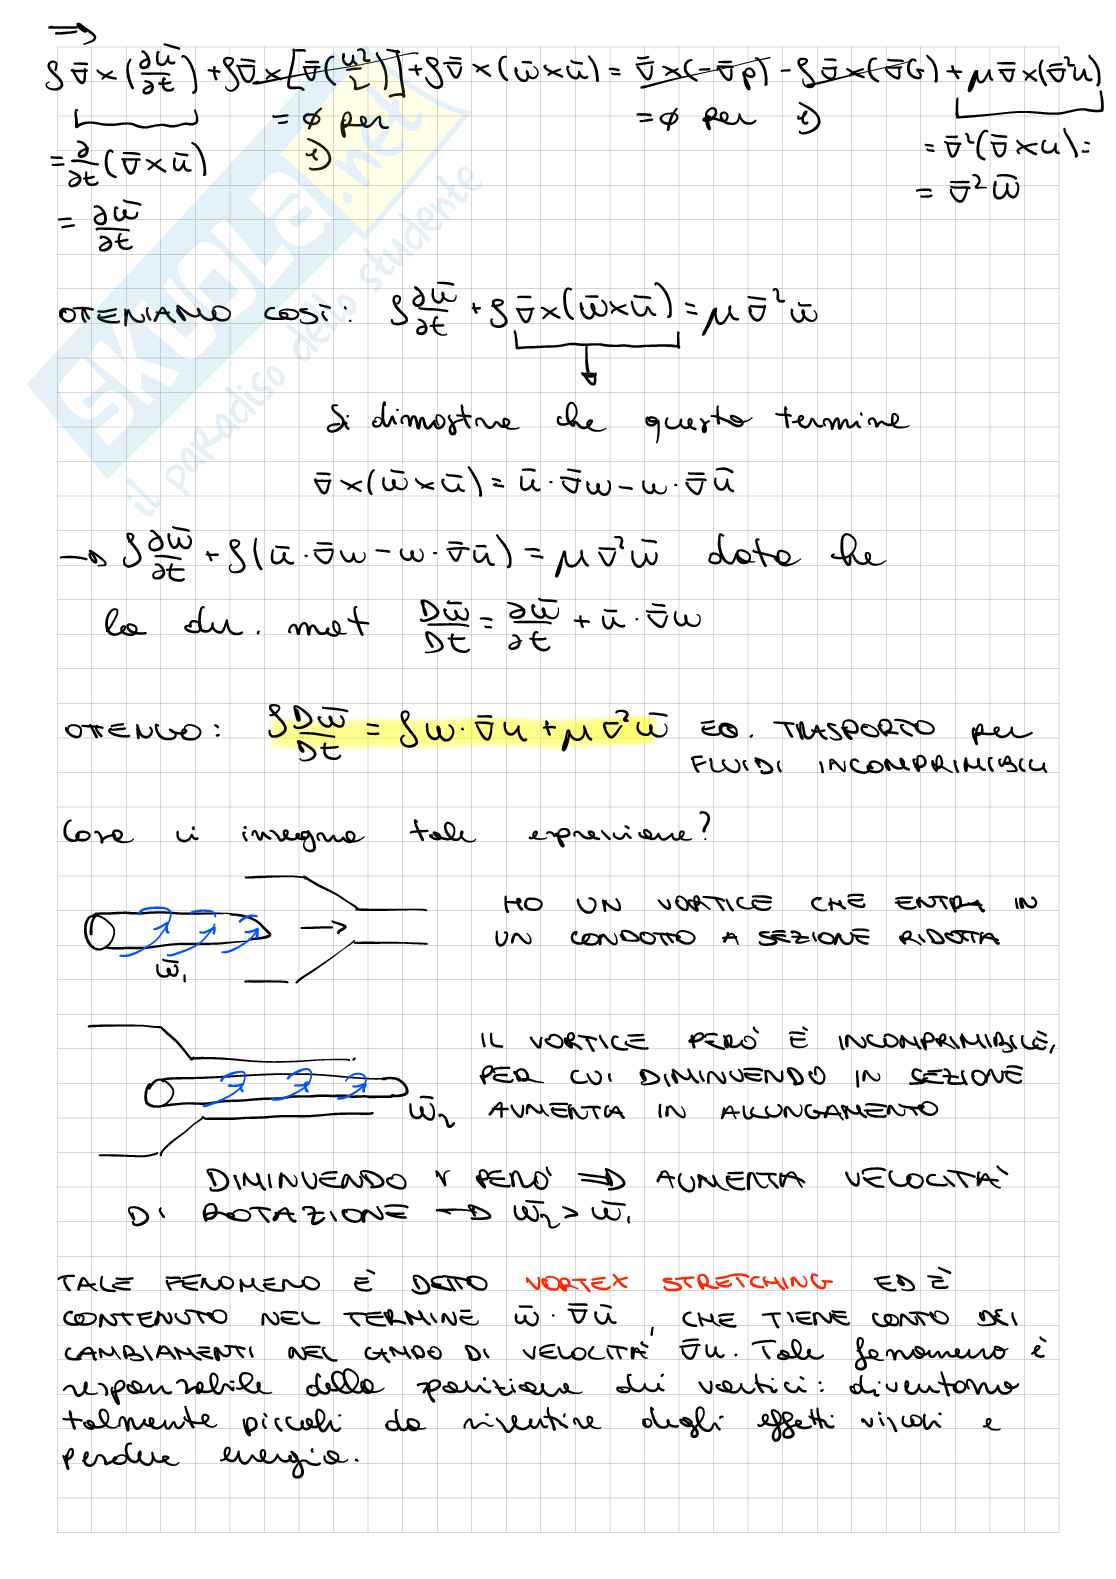 ⇒
ρ ∇̄ × (∂ū/∂t) + ρ∇̄ × [∇̄(u²/2)] + ρ∇̄ × (ω̄ × ū) = ∇̄ × (-∇̄p) - ρ ∇̄ × (∇̄G) + μ ∇̄ × (∇̄²u)
= ∅ per i)
= ∅ per i)
= ∂/∂t (∇̄ × ū)
= ∇̄²(∇̄ × u) =
= ∂ω̄/∂t
= ∇̄² ω̄
OTTENIAMO COSÌ: ρ ∂ω̄/∂t + ρ ∇̄ × (ω̄ × ū) = μ ∇̄² ω̄
Si dimostra che questo termine
∇̄ × (ω̄ × ū) = ū · ∇̄ω - ω · ∇̄ū
→ ρ ∂ω̄/∂t + ρ(ū · ∇̄ω - ω · ∇̄ū) = μ ∇̄² ω̄ dato che
la der. mat Dω̄/Dt = ∂ω̄/∂t + ū · ∇̄ω
OTTENGO: ρ Dω̄/Dt = ρ ω · ∇̄u + μ ∇̄² ω̄ EQ. TRASPORTO per
FLUIDI INCOMPRIMIBILI
Cosa ci insegna tale espressione?
HO UN VORTICE CHE ENTRA IN
UN CONDOTTO A SEZIONE RIDOTTA
ω̄₁
IL VORTICE PERÒ È INCOMPRIMIBILE,
PER CUI DIMINUENDO IN SEZIONE
AUMENTA IN ALLUNGAMENTO
ω̄₂
DIMINUENDO r PERÒ ⇒ AUMENTA VELOCITÀ
DI ROTAZIONE → ω̄₂ > ω̄₁
TALE FENOMENO È DETTO VORTEX STRETCHING ED È
CONTENUTO NEL TERMINE ω̄ · ∇̄ū, CHE TIENE CONTO DEI
CAMBIAMENTI NEL CAMPO DI VELOCITÀ ∇̄u. Tale fenomeno è
responsabile della partizione dei vortici: diventano
talmente piccoli da risentire degli effetti viscosi e
perdere energia.
SKUOLA.net
il paradiso dello studente